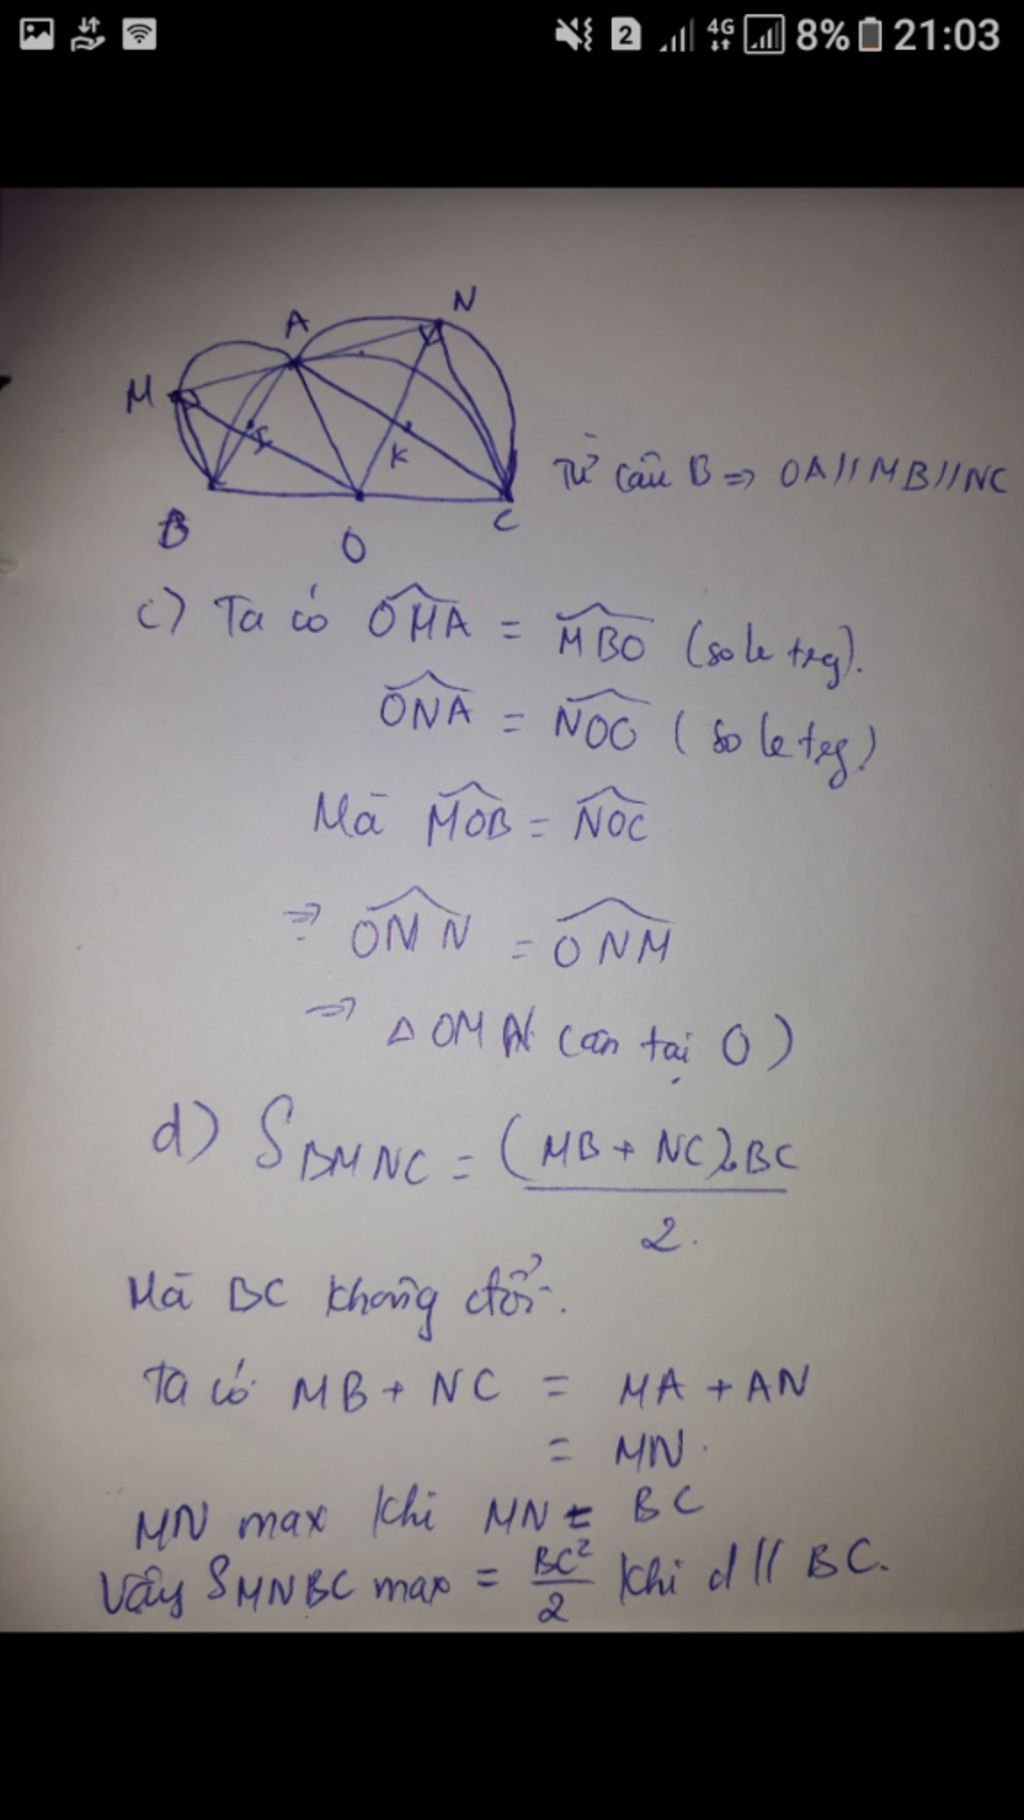 2 4G 8% 21:03
N
A
M
K
B
O
C
Từ câu B => OA//MB//NC
c) Ta có OMA = MBO (so le trg).
ONA = NOC (so le trg)
Mà MOB = NOC
=> OMN = ONM
=> Δ OMN cân tại O)
d) S BMNC = (MB + NC).BC
2.
Mà BC không đổi.
Ta có MB + NC = MA + AN
= MN.
MN max khi MN = BC
Vậy S MNBC max = BC²/2 khi d // BC.